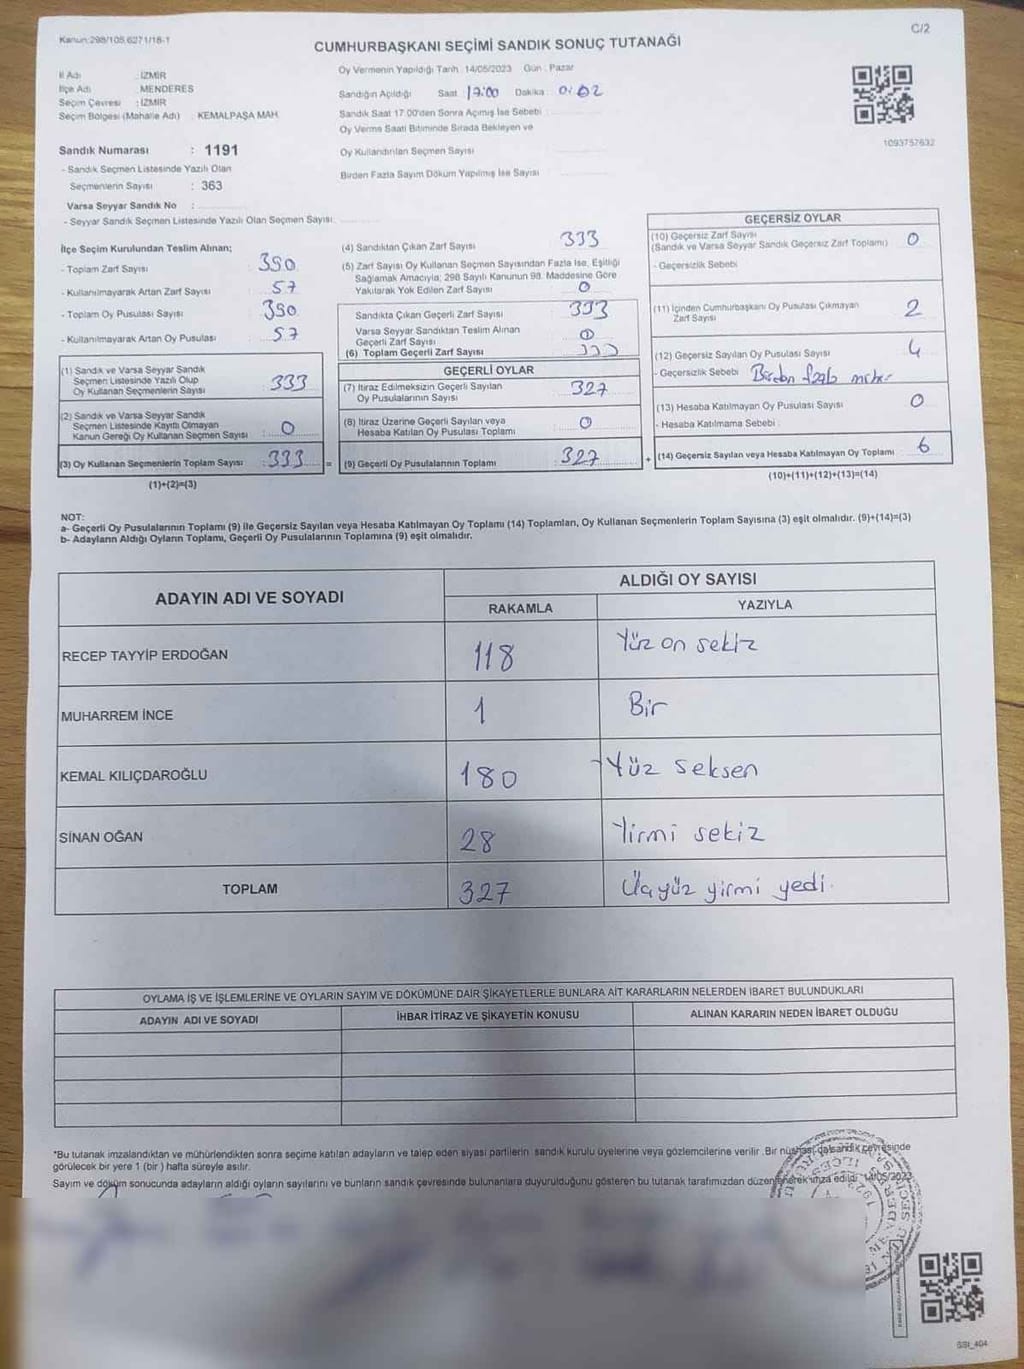 Kanun:298/105,6271/18-1
C/2
CUMHURBAŞKANI SEÇİMİ SANDIK SONUÇ TUTANAĞI
İl Adı : İZMİR
İlçe Adı : MENDERES
Seçim Çevresi : İZMİR
Seçim Bölgesi (Mahalle Adı) : KEMALPAŞA MAH.
Sandık Numarası : 1191
- Sandık Seçmen Listesinde Yazılı Olan
Seçmenlerin Sayısı : 363
Varsa Seyyar Sandık No :
- Seyyar Sandık Seçmen Listesinde Yazılı Olan Seçmen Sayısı:
Oy Vermenin Yapıldığı Tarih : 14/05/2023 Gün : Pazar
Sandığın Açıldığı Saat : 17:00 Dakika :
Sandık Saat 17.00'den Sonra Açılmış İse Sebebi :
Oy Verme Saati Bitiminde Sırada Bekleyen ve
Oy Kullandırılan Seçmen Sayısı :
Birden Fazla Sayım Döküm Yapılmış İse Sayısı :
1093757632
İlçe Seçim Kurulundan Teslim Alınan;
- Toplam Zarf Sayısı : 390
- Kullanılmayarak Artan Zarf Sayısı : 57
- Toplam Oy Pusulası Sayısı : 390
- Kullanılmayarak Artan Oy Pusulası : 57
(1) Sandık ve Varsa Seyyar Sandık
Seçmen Listesinde Yazılı Olup
Oy Kullanan Seçmenlerin Sayısı : 333
(2) Sandık ve Varsa Seyyar Sandık
Seçmen Listesinde Kayıtlı Olmayan
Kanun Gereği Oy Kullanan Seçmen Sayısı : 0
(3) Oy Kullanan Seçmenlerin Toplam Sayısı : 333 =
(1)+(2)=(3)
(4) Sandıktan Çıkan Zarf Sayısı : 333
(5) Zarf Sayısı Oy Kullanan Seçmen Sayısından Fazla İse, Eşitliği
Sağlamak Amacıyla; 298 Sayılı Kanunun 98. Maddesine Göre
Yakılarak Yok Edilen Zarf Sayısı : 0
Sandıkta Çıkan Geçerli Zarf Sayısı : 333
Varsa Seyyar Sandıktan Teslim Alınan
Geçerli Zarf Sayısı :
(6) Toplam Geçerli Zarf Sayısı : 333
GEÇERLİ OYLAR
(7) İtiraz Edilmeksizin Geçerli Sayılan
Oy Pusulalarının Sayısı : 327
(8) İtiraz Üzerine Geçerli Sayılan veya
Hesaba Katılan Oy Pusulası Toplamı : 0
(9) Geçerli Oy Pusulalarının Toplamı : 327 +
GEÇERSİZ OYLAR
(10) Geçersiz Zarf Sayısı
(Sandık ve Varsa Seyyar Sandık Geçersiz Zarf Toplamı) : 0
- Geçersizlik Sebebi :
(11) İçinden Cumhurbaşkanı Oy Pusulası Çıkmayan
Zarf Sayısı : 2
(12) Geçersiz Sayılan Oy Pusulası Sayısı : 4
- Geçersizlik Sebebi : Birden fazla mühür
(13) Hesaba Katılmayan Oy Pusulası Sayısı : 0
- Hesaba Katılmama Sebebi :
(14) Geçersiz Sayılan veya Hesaba Katılmayan Oy Toplamı : 6
(10)+(11)+(12)+(13)=(14)
NOT:
a- Geçerli Oy Pusulalarının Toplamı (9) ile Geçersiz Sayılan veya Hesaba Katılmayan Oy Toplamı (14) Toplamları, Oy Kullanan Seçmenlerin Toplam Sayısına (3) eşit olmalıdır. (9)+(14)=(3)
b- Adayların Aldığı Oyların Toplamı, Geçerli Oy Pusulalarının Toplamına (9) eşit olmalıdır.
ADAYIN ADI VE SOYADI
ALDIĞI OY SAYISI
RAKAMLA YAZIYLA
RECEP TAYYİP ERDOĞAN 118 Yüz on sekiz
MUHARREM İNCE 1 Bir
KEMAL KILIÇDAROĞLU 180 Yüz seksen
SİNAN OĞAN 28 Yirmi sekiz
TOPLAM 327 Üçyüz yirmi yedi.
OYLAMA İŞ VE İŞLEMLERİNE VE OYLARIN SAYIM VE DÖKÜMÜNE DAİR ŞİKAYETLERLE BUNLARA AİT KARARLARIN NELERDEN İBARET BULUNDUKLARI
ADAYIN ADI VE SOYADI İHBAR İTİRAZ VE ŞİKAYETİN KONUSU ALINAN KARARIN NEDEN İBARET OLDUĞU
*Bu tutanak imzalandıktan ve mühürlendikten sonra seçime katılan adayların ve talep eden siyasi partilerin sandık kurulu üyelerine veya gözlemcilerine verilir. Bir nüshası da sandık çevresinde
görülecek bir yere 1 (bir) hafta süreyle asılır.
Sayım ve döküm sonucunda adayların aldığı oyların sayılarını ve bunların sandık çevresinde bulunanlara duyurulduğunu gösteren bu tutanak tarafımızdan düzenlenerek imza edildi. 14/05/2023
SSI_404